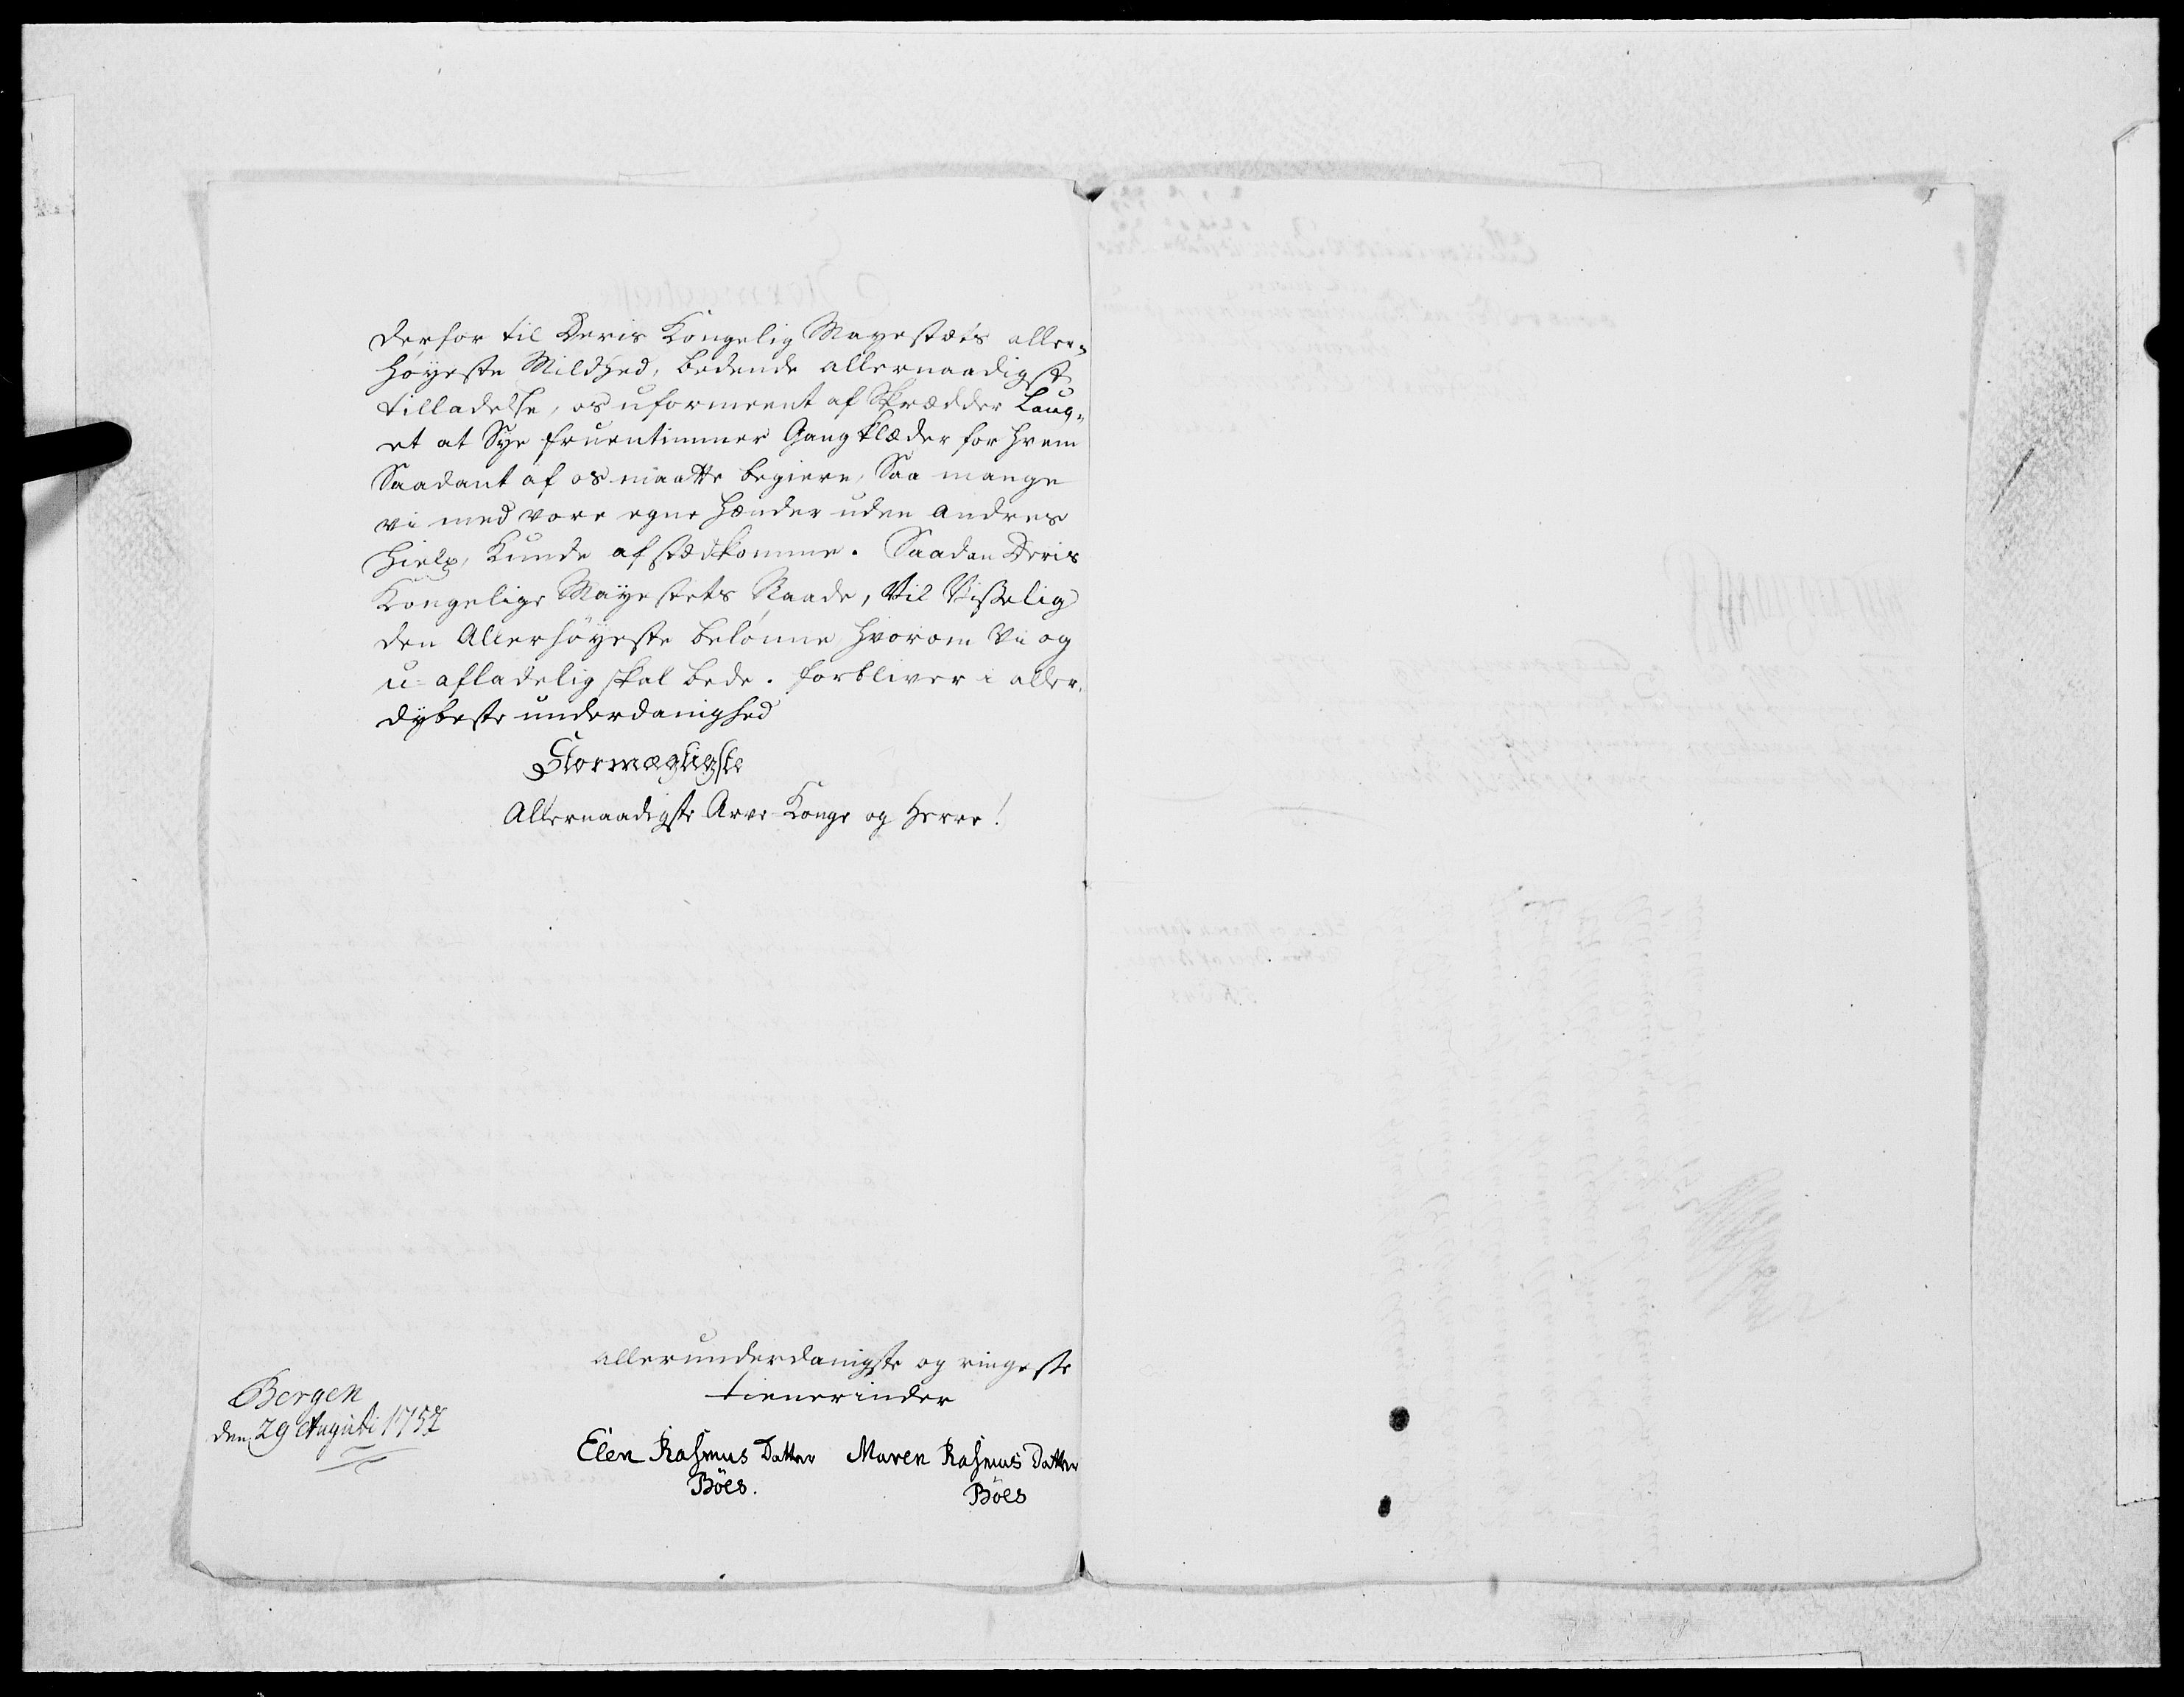 derfor til Deris Kongelig Mayestæts aller-
høyeste Mildhed, bedende allernaadigst
tilladelse, os uformeent af Skrædder Laug-
et at Sye fruentimmer Gangklæder for hvem
Saadant af os maatte begiere, Saa mange
vi med vore egne Hænder uden andres
Hielp, Kunde afstædkomme. Saadan Deris
Kongelige Mayestets Naade, Vil Visselig
den Allerhøyeste belønne hvorom Vi og
u-afladelig skal bede. forbliver i aller-
dybeste underdanighed
Stormægtigste
Allernaadigste Arve-Konge og Herre!
allerunderdanigste og ringeste
tienerinder
Bergen
den 29 Augusti 1757
Elen Rasmus Datter Maren Rasmus Datter
Böes. Böes